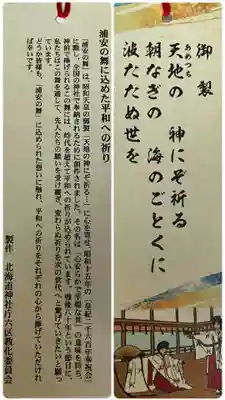 御製
天地の　神にぞ祈る
あめつち
朝なぎの　海のごとくに
波たたぬ世を
浦安の舞に込めた平和への祈り
「浦安の舞」は、昭和天皇の御製「天地の神にぞ祈る…」に心を寄せ、昭和十五年の「皇紀二千六百年奉祝会」
に際し、全国の神社で奉納されるために創作されました。その名は「心安らかで平穏な世」の意味を持ち、
神前で捧げられるこの舞には、時代を超えて平和への祈りが込められています。戦後八十年という節目に、
私たちはこの舞を通して、先人たちの願いを受け継ぎ、変わらぬ祈りを次の世代へと繋げていきたいと願っ
ています。
どうか皆様も、「浦安の舞」に込められた想いに触れ、平和への祈りをそれぞれの心から捧げていただけれ
ば幸いです。
製作　北海道神社庁六区教化委員会